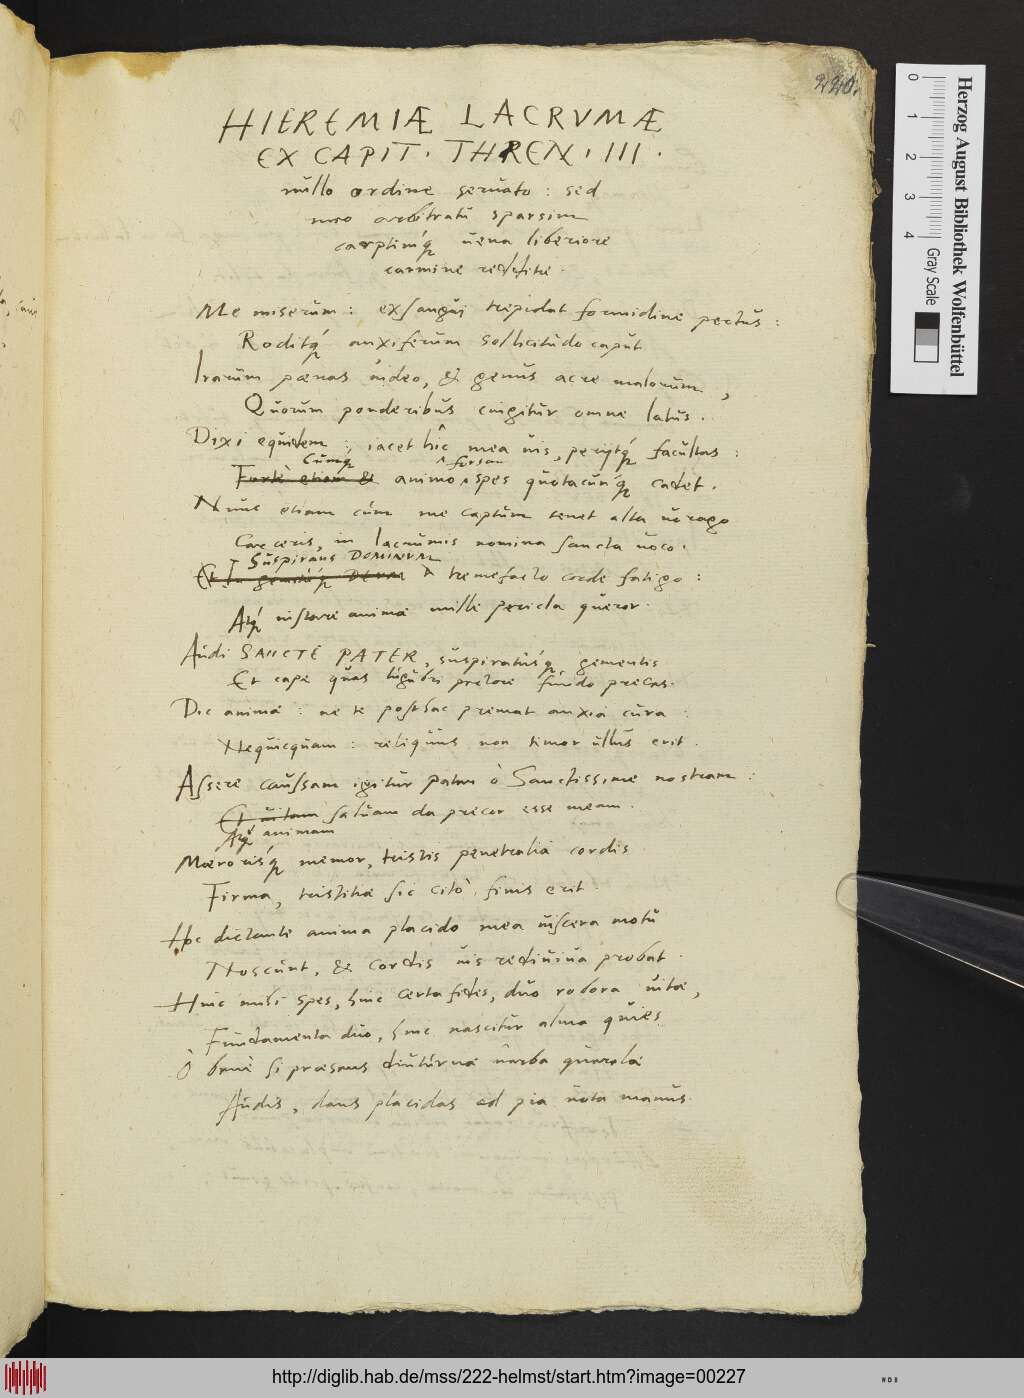 220.
HIEREMIÆ LACRVMÆ
EX CAPIT. THREN. III.
nullo ordine seruato: sed
meo arbitratu sparsim
carptimq́ uena liberiore
carmine redditæ.
Me miserum: exsangui trepidat formidine pectus:
Roditq́ anxiferum sollicitudo caput
Irarum pœnas uideo, & genus acre malorum,
Quorum ponderibus cingitur omne latus.
Dixi equidem: iacet hîc mea uis, perijtq́ facultas:
Cumq́ forsan
Fortè etiam & animo spes quotacunq́ cadet.
Nunc etiam cùm me captum tenet alta uorago
Carceris, in lacrumis nomina sancta uoco.
Suspirans DOMINVM
Et In gemituq́ DEVM tremefacto corde fatigo:
Atq́ instare animæ mille pericla queror.
Audi SANCTE PATER, suspiratusq́ gementis
Et cape quas lugubri pectore fundo preces.
Dic animæ: ne te posthac premat anxia cura:
Nequicquam: reliquus non timor ullus erit.
Assere caussam igitur patri ò Sanctissime nostram:
Et uitam saluam da precor esse meam.
Atq́ animam
Mœrorisq́ memor, tristis penetralia cordis
Firma, tristitiæ sic citò finis erit.
Hoc dictante anima placido mea uiscera motu
Noscunt, & cordis uis rediuiua probat.
Hinc mihi spes, hinc certa fides, duo robora uitæ,
Fundamenta duo, hinc nascitur alma quies
O bene si præsens diuturnæ uerba querelæ
Audis, dans placidas ad pia uota manus.
Herzog August Bibliothek Wolfenbüttel
0 1 2 3 4
Gray Scale
http://diglib.hab.de/mss/222-helmst/start.htm?image=00227